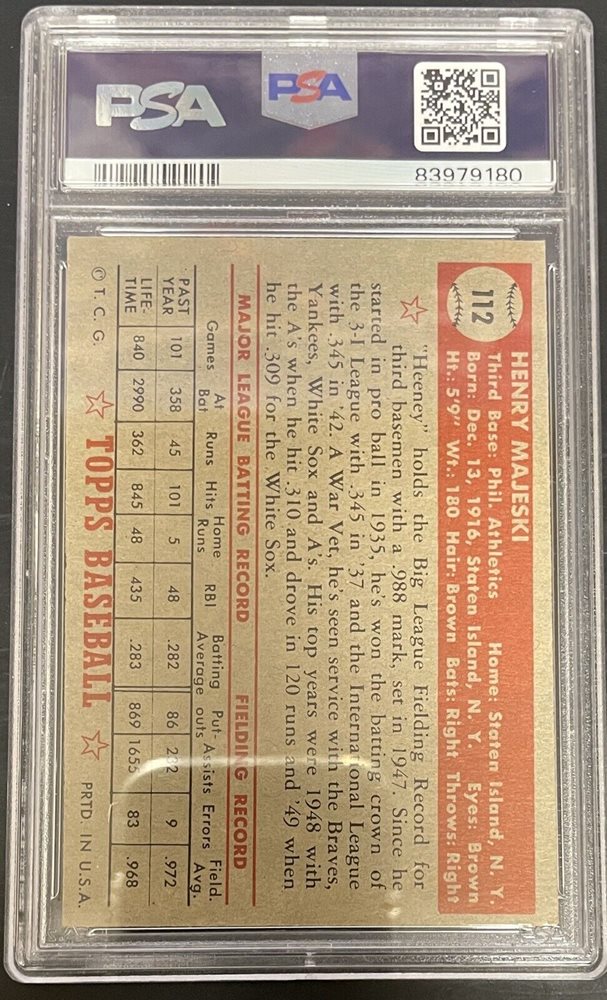 PSA
PSA
83979180
112
HENRY MAJESKI
Third Base: Phil. Athletics Home: Staten Island, N. Y.
Born: Dec. 13, 1916, Staten Island, N. Y. Eyes: Brown
Ht.: 5'9" Wt.: 180 Hair: Brown Bats: Right Throws: Right
"Heeney" holds the Big League Fielding Record for
third basemen with a .988 mark, set in 1947. Since he
started in pro ball in 1935, he's won the batting crown of
the 3-I League with .345 in '37 and the International League
with .345 in '42. A War Vet, he's seen service with the Braves,
Yankees, White Sox and A's. His top years were 1948 with
the A's when he hit .310 and drove in 120 runs and '49 when
he hit .309 for the White Sox.
MAJOR LEAGUE BATTING RECORD FIELDING RECORD
Games At Bat Runs Hits Home Runs RBI Batting Average Put-outs Assists Errors Field. Avg.
PAST YEAR 101 358 45 101 5 48 .282 86 202 9 .972
LIFE-TIME 840 2990 362 845 48 435 .283 869 1655 83 .968
© T. C. G. TOPPS BASEBALL PRTD. IN U.S.A.